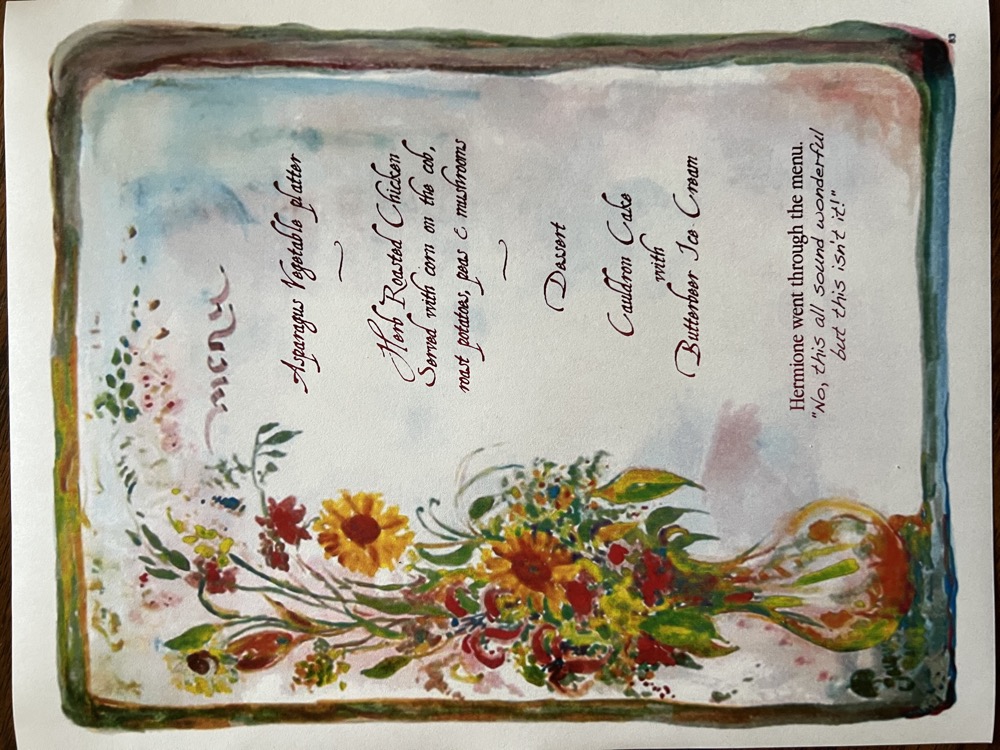 menu
Asparagus Vegetable platter
Herb Roasted Chicken
Served with corn on the cob,
roast potatoes, peas & mushrooms
Dessert
Cauldron Cake
with
Butterbeer Ice Cream
Hermione went through the menu.
"No, this all sound wonderful
but this isn't it!"
83